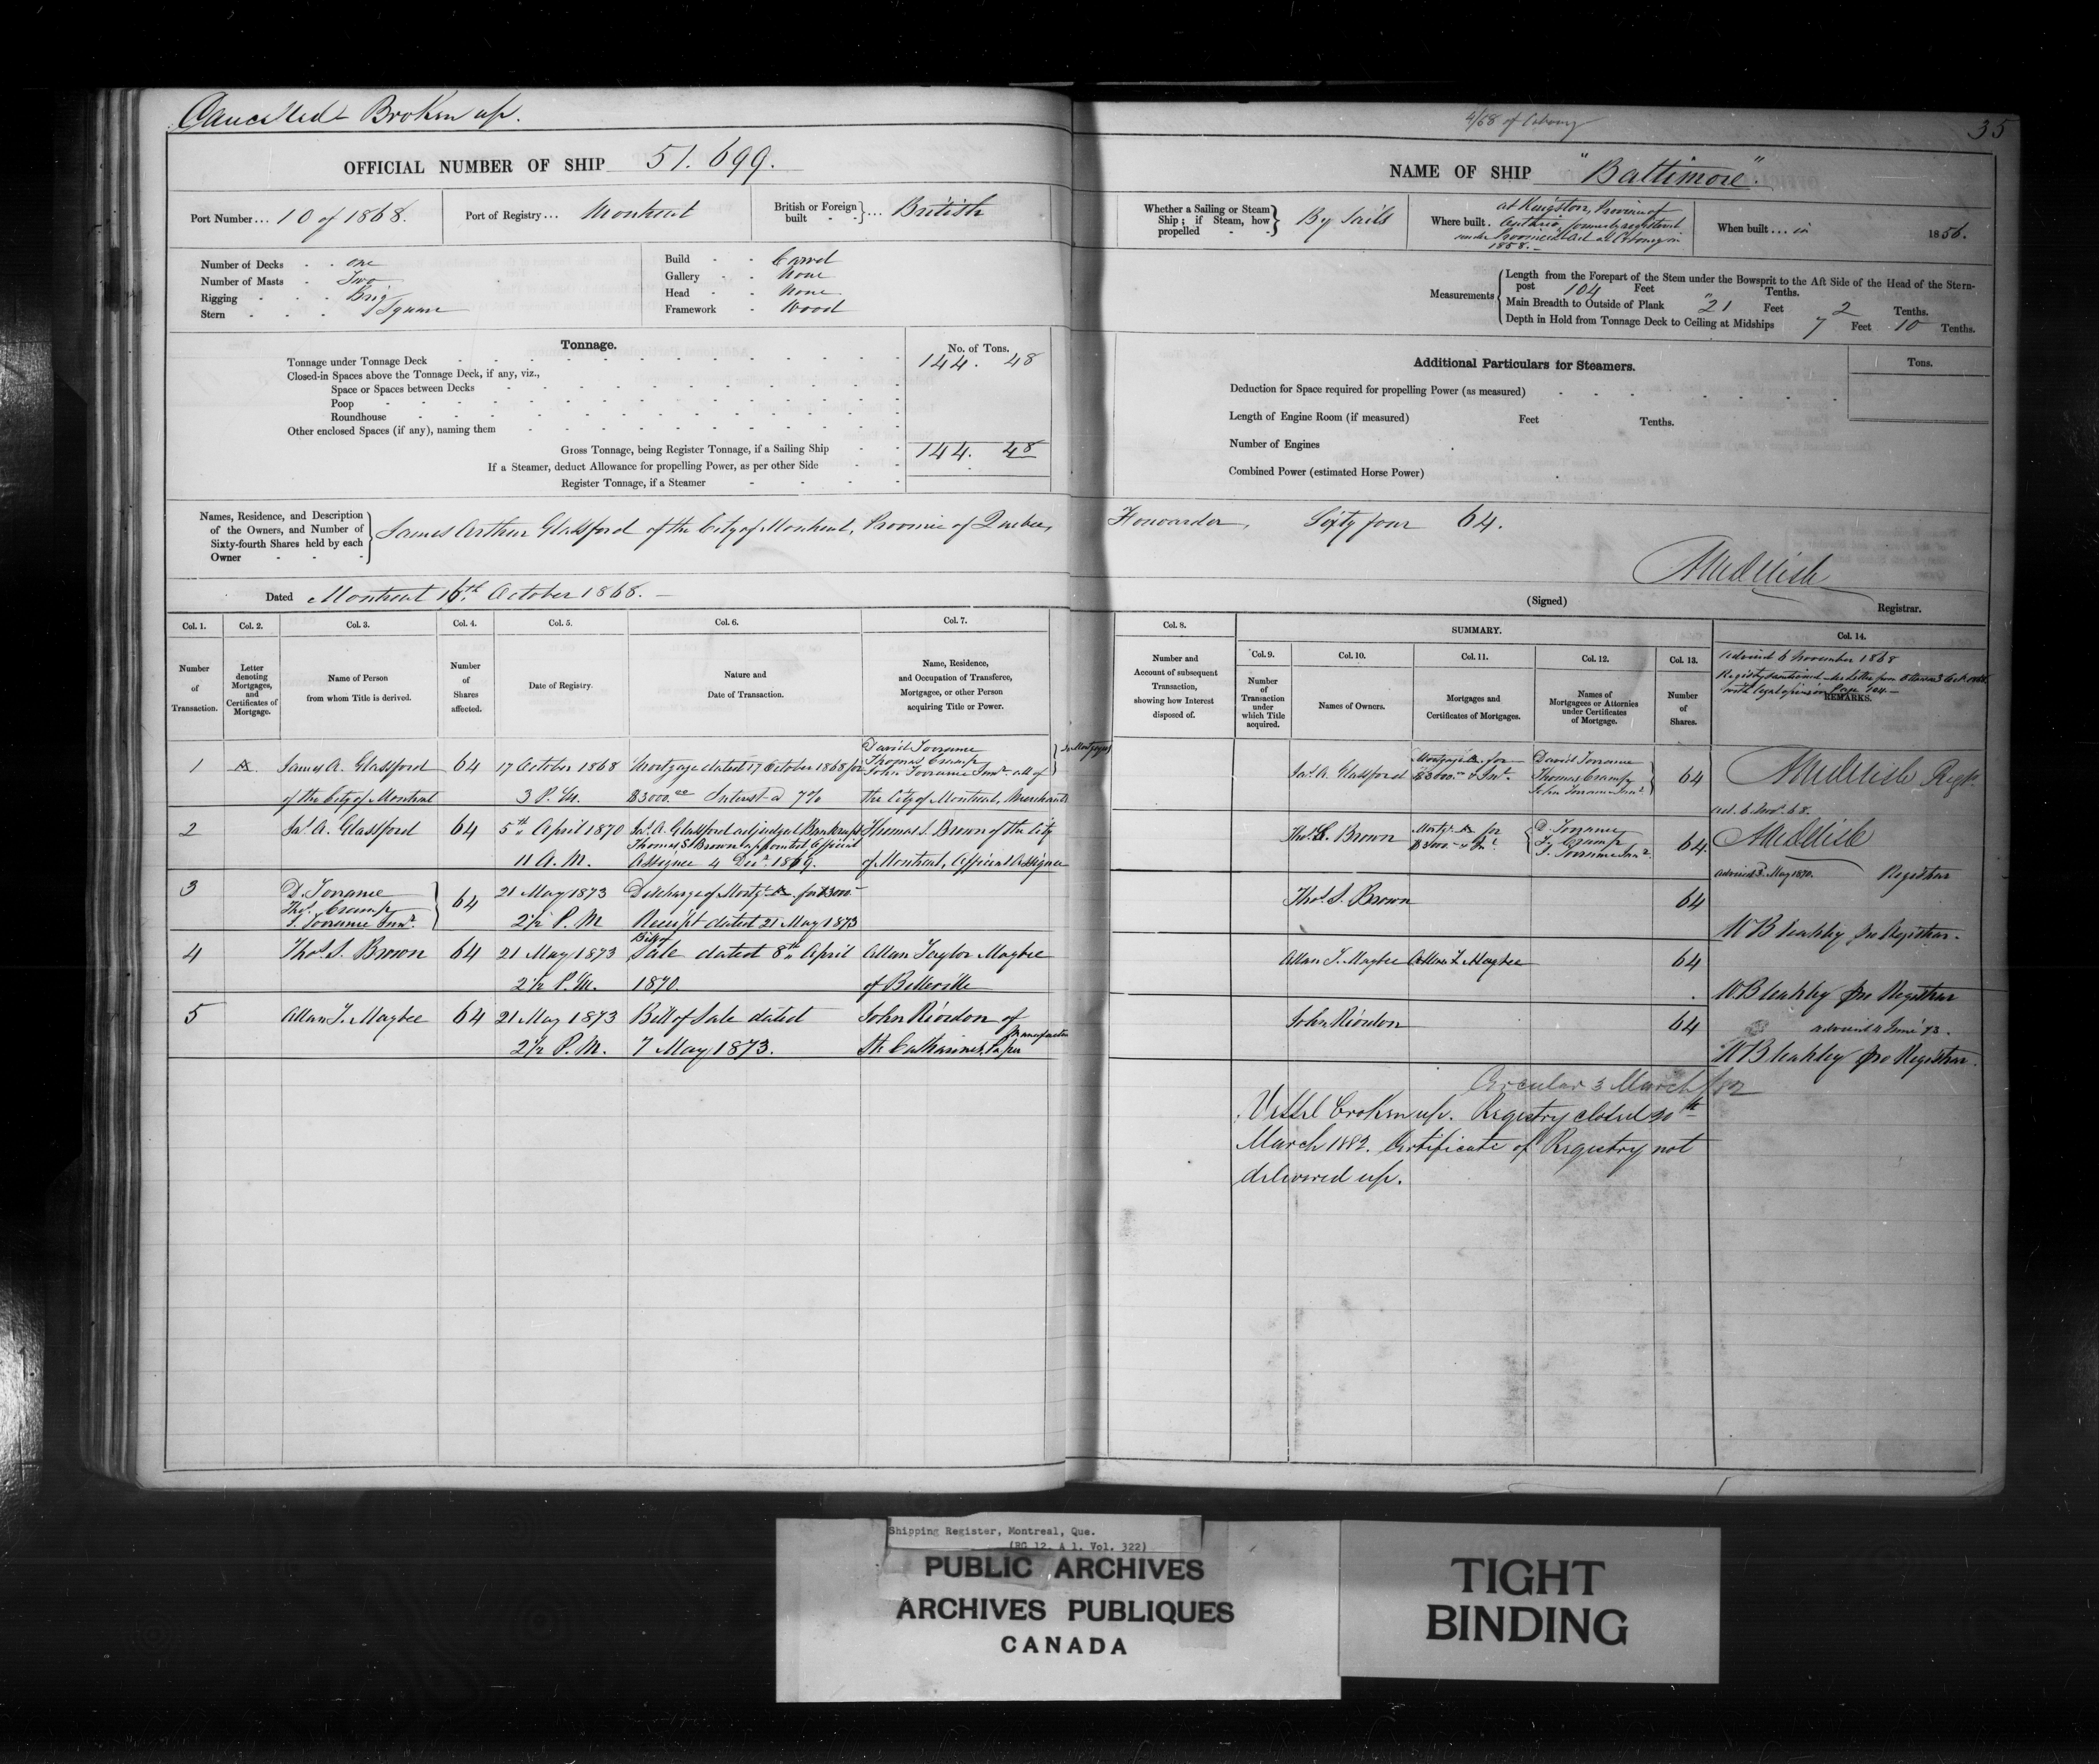 Cancelled Broken up.
OFFICIAL NUMBER OF SHIP 51.699.
Port Number... 10 of 1868.
Port of Registry... Montreal
British or Foreign built - - }... British
Number of Decks - - one
Number of Masts - Two
Rigging - - - Brig
Stern - - - Square
Build - - Carvel
Gallery - - None
Head - - None
Framework - Wood
Tonnage.
No. of Tons.
Tonnage under Tonnage Deck 144. 48
Closed-in Spaces above the Tonnage Deck, if any, viz.,
Space or Spaces between Decks
Poop
Roundhouse
Other enclosed Spaces (if any), naming them
Gross Tonnage, being Register Tonnage, if a Sailing Ship 144. 48
If a Steamer, deduct Allowance for propelling Power, as per other Side
Register Tonnage, if a Steamer
Names, Residence, and Description
of the Owners, and Number of
Sixty-fourth Shares held by each
Owner
James Arthur Glassford of the City of Montreal, Province of Quebec,
Dated Montreal 16th October 1868.
Col. 1. Col. 2. Col. 3. Col. 4. Col. 5. Col. 6. Col. 7.
Number of Transaction.
Letter denoting Mortgages, and Certificates of Mortgage.
Name of Person from whom Title is derived.
Number of Shares affected.
Date of Registry.
Nature and Date of Transaction.
Name, Residence, and Occupation of Transferee, Mortgagee, or other Person acquiring Title or Power.
1 A. James A. Glassford 64 17 October 1868 Mortgage dated 17 October 1868 for
David Torrance
Thomas Cramp
John Torrance Junr. all of
of the City of Montreal 3 P.M. $3000.00 Interest @ 7% the City of Montreal, Merchants
2 Jas. A. Glassford 64 5th April 1870 Jas. A. Glassford adjudged Bankrupt Thomas S. Brown of the City
Thomas S Brown appointed Official
11 A.M. Assignee 4 Decr. 1869. of Montreal, Official Assignee
3 D. Torrance
Thos. Cramp
J. Torrance Junr.
64 21 May 1873 Discharge of Mortge A for $3000
2½ P.M Receipt dated 21 May 1873
4 Thos. S. Brown 64 21 May 1873 Bill of Sale dated 8th April Allan Taylor Maybee
2½ P.M. 1870. of Belleville
5 Allan T. Maybee 64 21 May 1873 Bill of Sale dated John Riordon of
2½ P.M. 7 May 1873. St. Catharines, Paper manufacturer
4/68 of Cobourg
35
NAME OF SHIP "Baltimore".
Whether a Sailing or Steam Ship; if Steam, how propelled - - } By Sails
Where built. at Kingston, Province of
Ontario, formerly registered
under Provincial Act at Cobourg in
1858.
When built... in 1856.
Measurements
Length from the Forepart of the Stem under the Bowsprit to the Aft Side of the Head of the Stern-
post 104 Feet " Tenths.
Main Breadth to Outside of Plank 21 Feet 2 Tenths.
Depth in Hold from Tonnage Deck to Ceiling at Midships 7 Feet 10 Tenths.
Additional Particulars for Steamers.
Tons.
Deduction for Space required for propelling Power (as measured)
Length of Engine Room (if measured) Feet Tenths.
Number of Engines
Combined Power (estimated Horse Power)
Forwarder, Sixty four 64.
(Signed)
Registrar.
Col. 8.
SUMMARY.
Col. 14.
Col. 9. Col. 10. Col. 11. Col. 12. Col. 13.
Number and Account of subsequent Transaction, showing how Interest disposed of.
Number of Transaction under which Title acquired.
Names of Owners.
Mortgages and Certificates of Mortgages.
Names of Mortgagees or Attornies under Certificates of Mortgage.
Number of Shares.
Advised 6 November 1868
Registry sanctioned
REMARKS.
Jn. Mortgagees
Jas. A. Glassford Mortgage A for $3000.00 & Int. David Torrance Thomas Cramp John Torrance Junr. 64
Regr.
ad. 6 Novr. 68.
Thos. S. Brown Mortge A for $3000 & Int. D. Torrance T. Cramp J. Torrance Junr. 64.
Advised 3 May 1870. Registrar
Thos. S. Brown 64
pro Registrar.
Allan T. Maybee Allan T. Maybee 64
pro Registrar
John Riordon 64
advised 4 June 73.
pro Registrar.
Circular 3 March /82
Vessel broken up. Registry closed 20th
March 1882. Certificate of Registry not
delivered up.
Shipping Register, Montreal, Que.
(RG 12, A 1, Vol. 322)
PUBLIC ARCHIVES
ARCHIVES PUBLIQUES
CANADA
TIGHT
BINDING